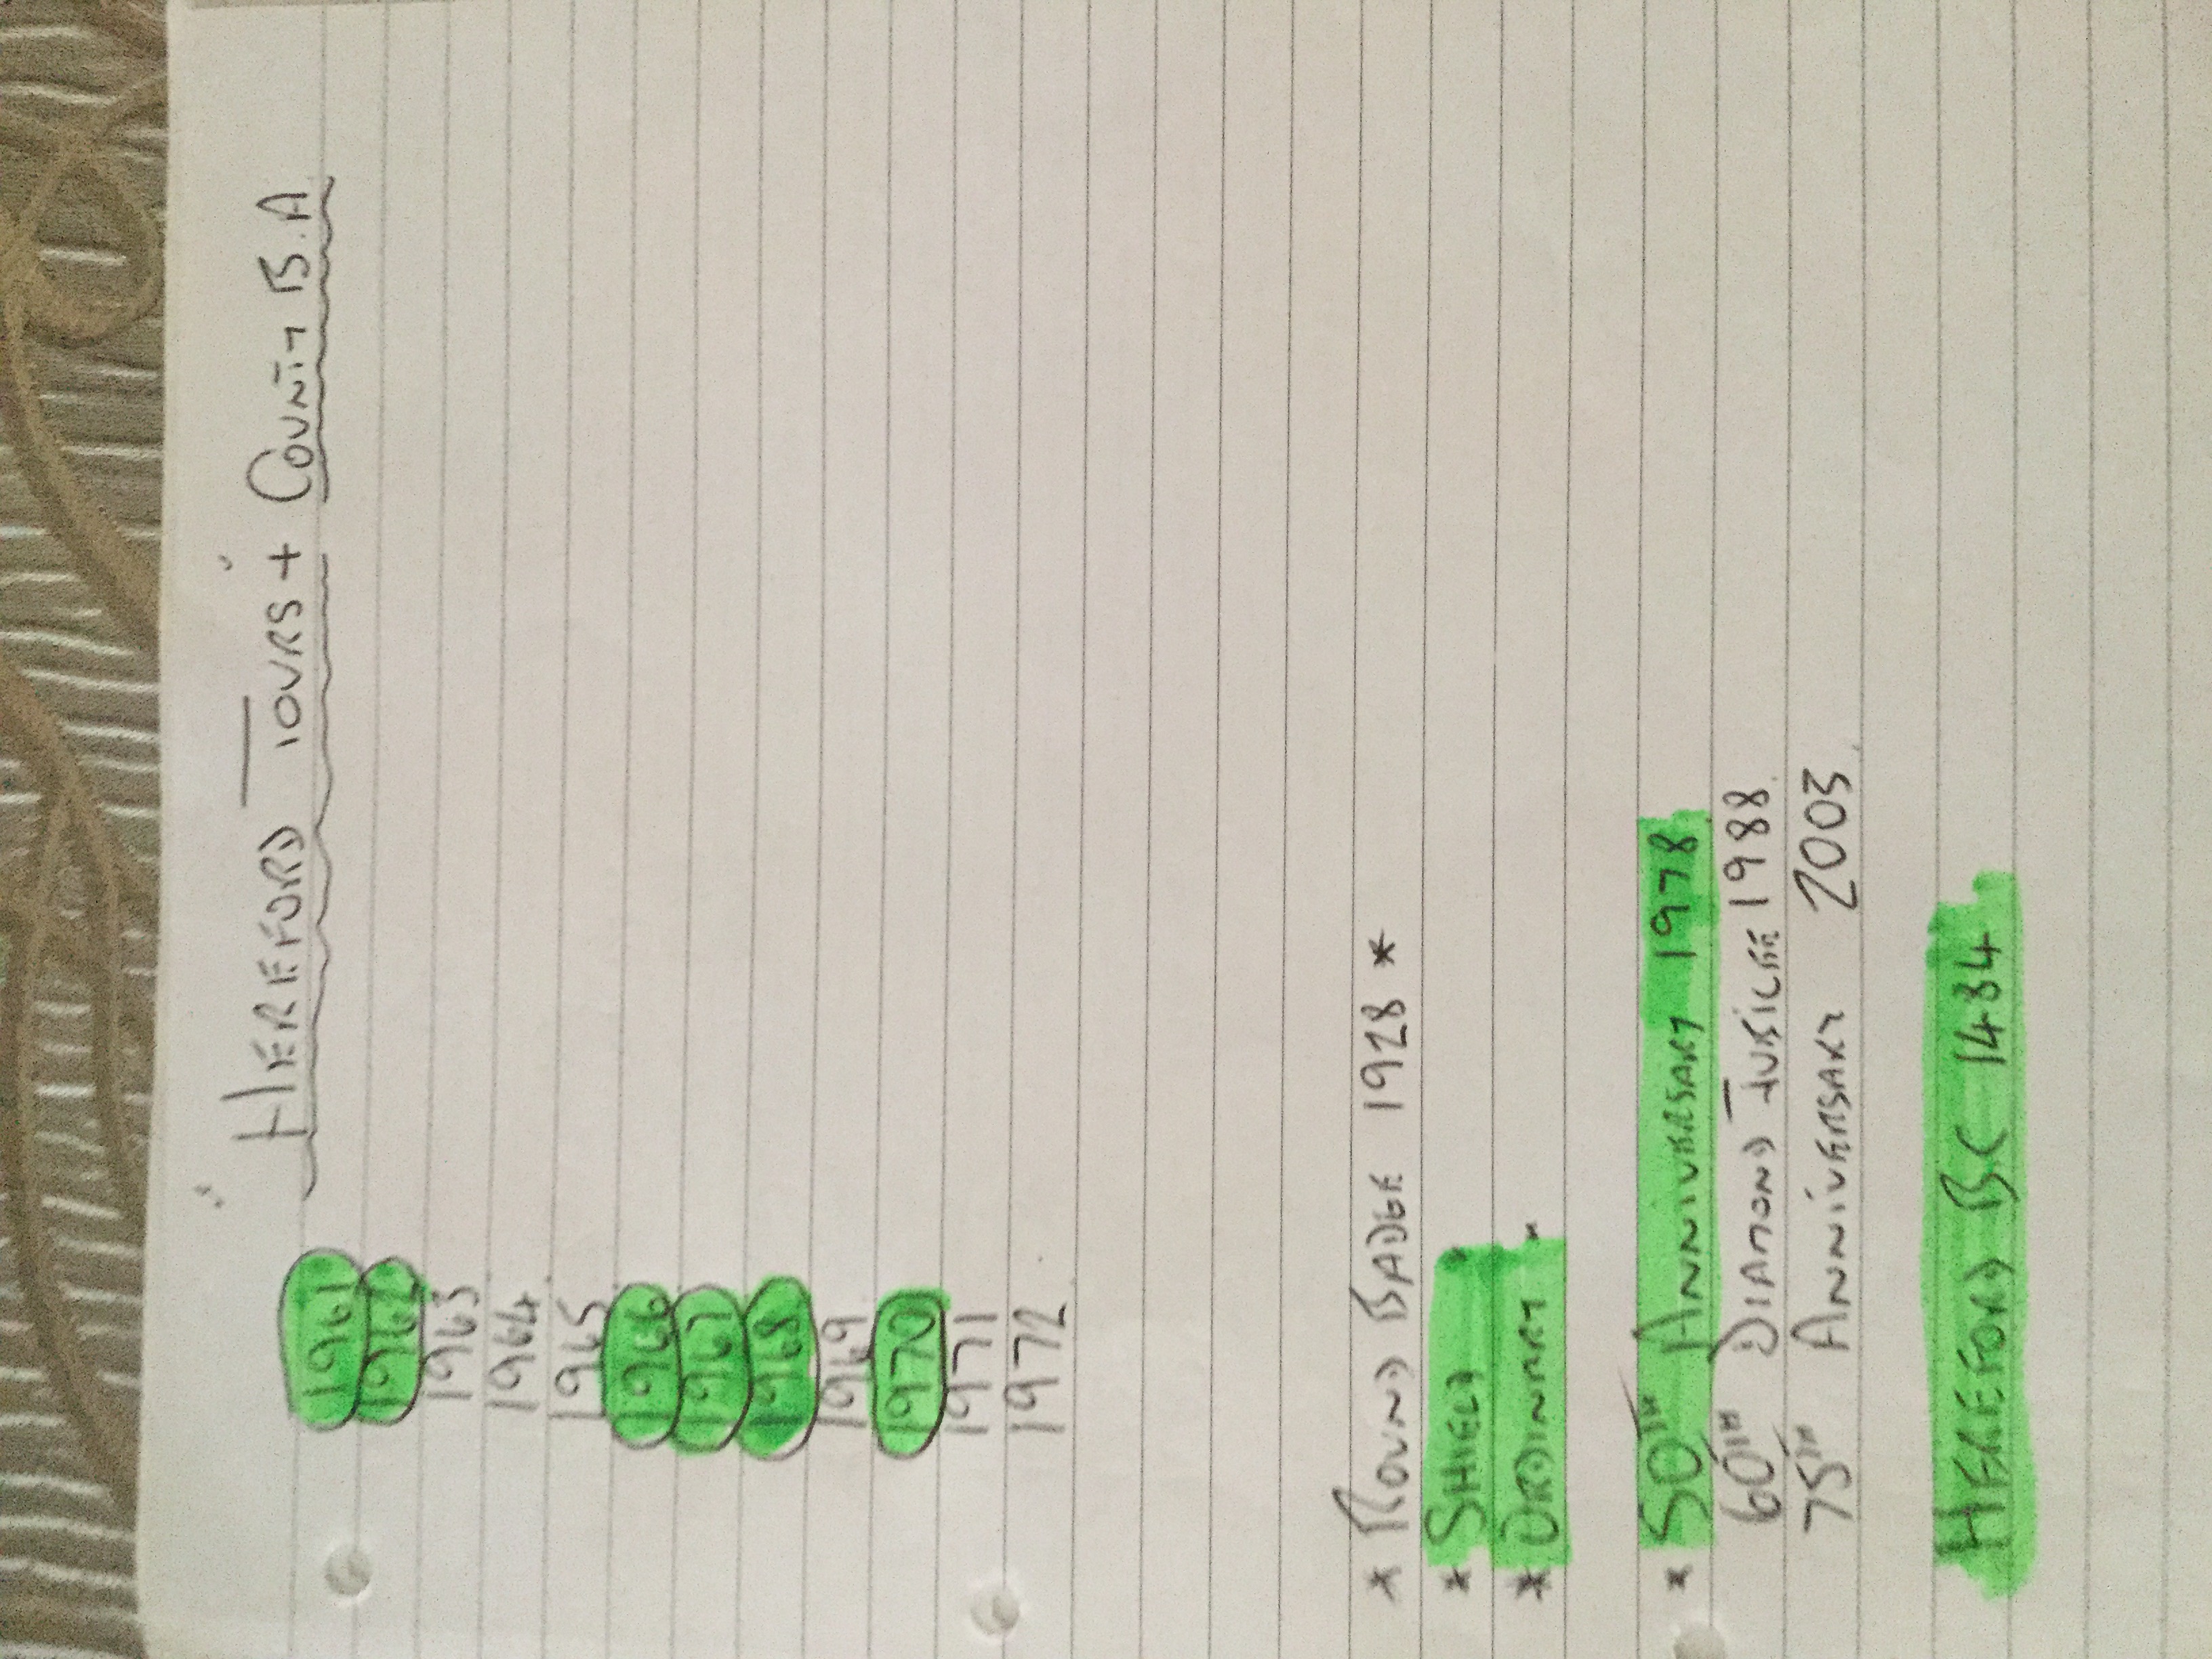 HEREFORD TOURS + COUNTY B.A
1961
1962
1963
1964
1965
1966
1967
1968
1969
1970
1971
1972
* ROUND BADGE 1928 *
* SHIELD
* ORDINARY
* 50TH ANNIVERSARY 1978
60TH DIAMOND JUBILEE 1988
75TH ANNIVERSARY 2003
HEREFORD BC 1484